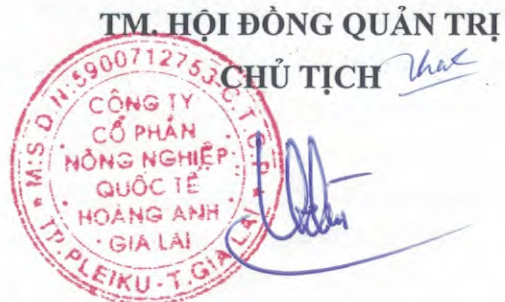 TM. HỘI ĐỒNG QUẢN TRỊ
CHỦ TỊCH
M.S.D.N:5900712753-C.T.C.P
CÔNG TY
CỔ PHẦN
NÔNG NGHIỆP
QUỐC TẾ
HOÀNG ANH
GIA LAI
TP.PLEIKU-T.GIA LAI